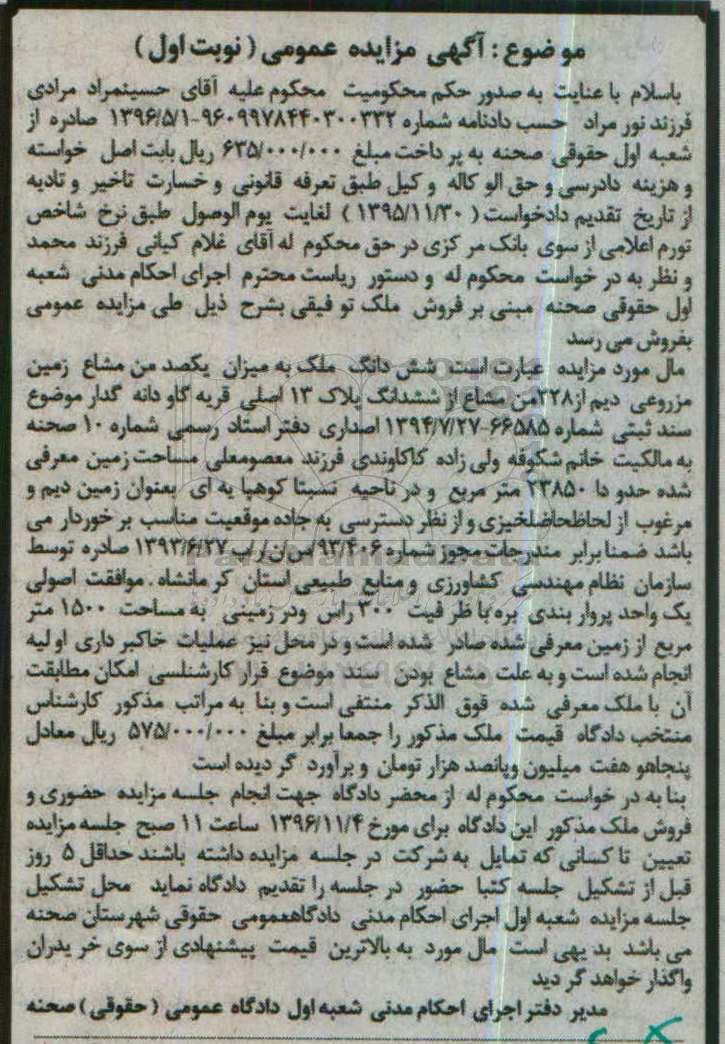 موضوع : آگهی مزایده عمومی ( نوبت اول )
باسلام با عنایت به صدور حکم محکومیت محکوم علیه آقای حسینمراد مرادی
فرزند نور مراد حسب دادنامه شماره ۹۶۰۹۹۷۸۴۴۰۳۰۰۳۳۲-۱۳۹۶/۵/۱ صادره از
شعبه اول حقوقی صحنه به پر داخت مبلغ ۶۳۵/۰۰۰/۰۰۰ ریال بابت اصل خواسته
و هزینه دادرسی و حق الو کاله و کیل طبق تعرفه قانونی و خسارت تاخیر و تادیه
از تاریخ تقدیم دادخواست ( ۱۳۹۵/۱۱/۳۰ ) لغایت یوم الوصول طبق نرخ شاخص
تورم اعلامی از سوی بانک مر کزی در حق محکوم له آقای غلام کیانی فرزند محمد
و نظر به در خواست محکوم له و دستور ریاست محترم اجرای احکام مدنی شعبه
اول حقوقی صحنه مبنی بر فروش ملک تو فیقی بشرح ذیل طی مزایده عمومی
بفروش می رسد
مال مورد مزایده عبارت است شش دانگ ملک به میزان یکصد من مشاع زمین
مزروعی دیم از ۲۲۸من مشاع از ششدانگ پلاک ۱۳ اصلی قریه گاو دانه گدار موضوع
سند ثبتی شماره ۶۶۵۸۵-۱۳۹۴/۷/۲۷ اصداری دفتر اسناد رسمی شماره ۱۰ صحنه
به مالکیت خانم شکوفه ولی زاده کاکاوندی فرزند معصومعلی مساحت زمین معرفی
شده حدو دا ۲۳۸۵۰ متر مربع و در ناحیه نسبتا کوهپا یه ای بعنوان زمین دیم و
مرغوب از لحاظحاضلخیزی و از نظر دسترسی به جاده موقعیت مناسب بر خوردار می
باشد ضمنا برابر مندرجات مجوز شماره ۹۳/۴۰۶/س/ن/ر/ب ۱۳۹۳/۶/۲۷ صادره توسط
سازمان نظام مهندسی کشاورزی و منابع طبیعی استان کر مانشاه . موافقت اصولی
یک واحد پروار بندی بره با ظر فیت ۳۰۰ راس ودر زمینی به مساحت ۱۵۰۰ متر
مربع از زمین معرفی شده صادر شده است و در محل نیز عملیات خاکبر داری او لیه
انجام شده است و به علت مشاع بودن سند موضوع قرار کارشناسی امکان مطابقت
آن با ملک معرفی شده فوق الذکر منتفی است و بنا به مراتب مذکور کارشناس
منتخب دادگاه قیمت ملک مذکور را جمعا برابر مبلغ ۵۷۵/۰۰۰/۰۰۰ ریال معادل
پنجاهو هفت میلیون وپانصد هزار تومان و برآورد گر دیده است
بنا به در خواست محکوم له از محضر دادگاه جهت انجام جلسه مزایده حضوری و
فروش ملک مذکور این دادگاه برای مورخ ۱۳۹۶/۱۱/۴ ساعت ۱۱ صبح جلسه مزایده
تعیین تا کسانی که تمایل به شرکت در جلسه مزایده داشته باشند حداقل ۵ روز
قبل از تشکیل جلسه کتبا حضور در جلسه را تقدیم دادگاه نماید محل تشکیل
جلسه مزایده شعبه اول اجرای احکام مدنی دادگاهعمومی حقوقی شهرستان صحنه
می باشد بد یهی است مال مورد به بالاترین قیمت پیشنهادی از سوی خر یدران
واگذار خواهد گر دید
مدیر دفتر اجرای احکام مدنی شعبه اول دادگاه عمومی ( حقوقی ) صحنه